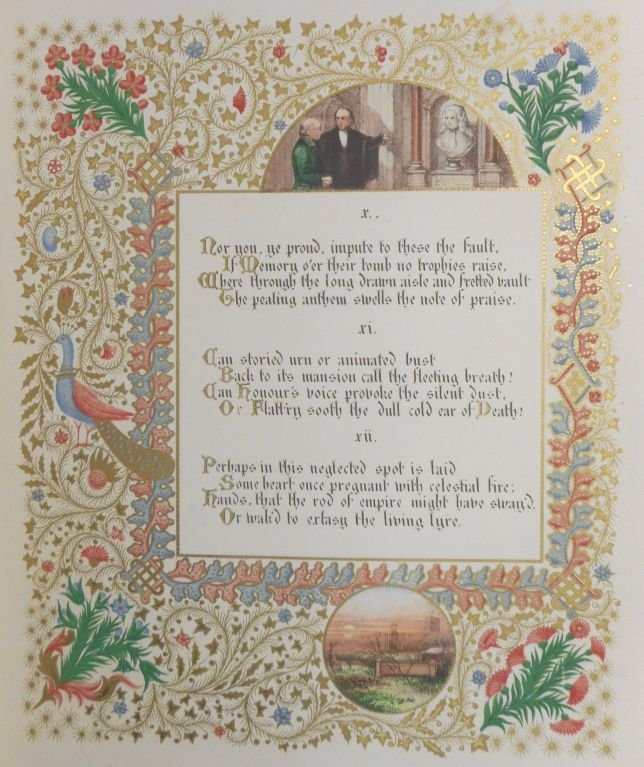 x..
Nor you, ye proud, impute to these the fault,
If Memory o'er their tomb no trophies raise,
Where through the long drawn aisle and fretted vault
The pealing anthem swells the note of praise.
xi.
Can storied urn or animated bust
Back to its mansion call the fleeting breath?
Can Honour's voice provoke the silent dust,
Or Flatt'ry sooth the dull cold ear of Death?
xii.
Perhaps in this neglected spot is laid
Some heart once pregnant with celestial fire;
Hands, that the rod of empire might have sway'd,
Or wak'd to extasy the living lyre.